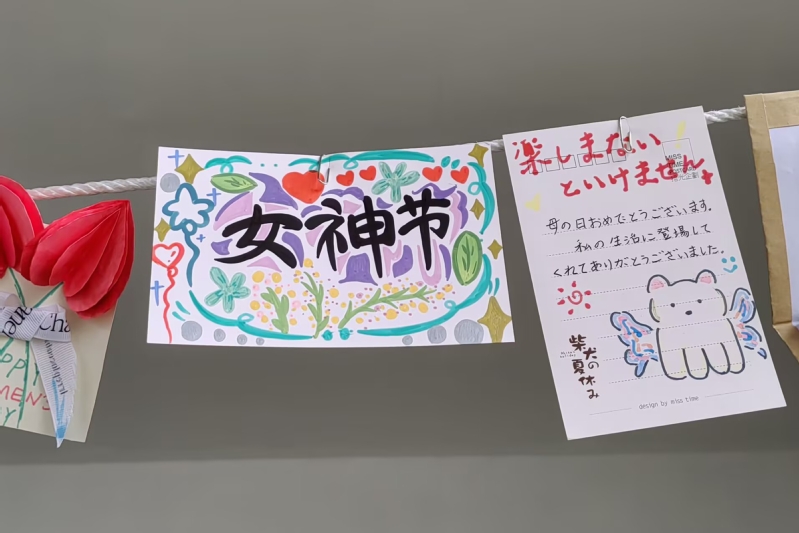 Cha
MEN'S
女神节
楽しまない
といけません
MISS
母の日おめでとうございます。
私の生活に登場して
くれてありがとうございました。
柴犬の
夏休み
design by miss time